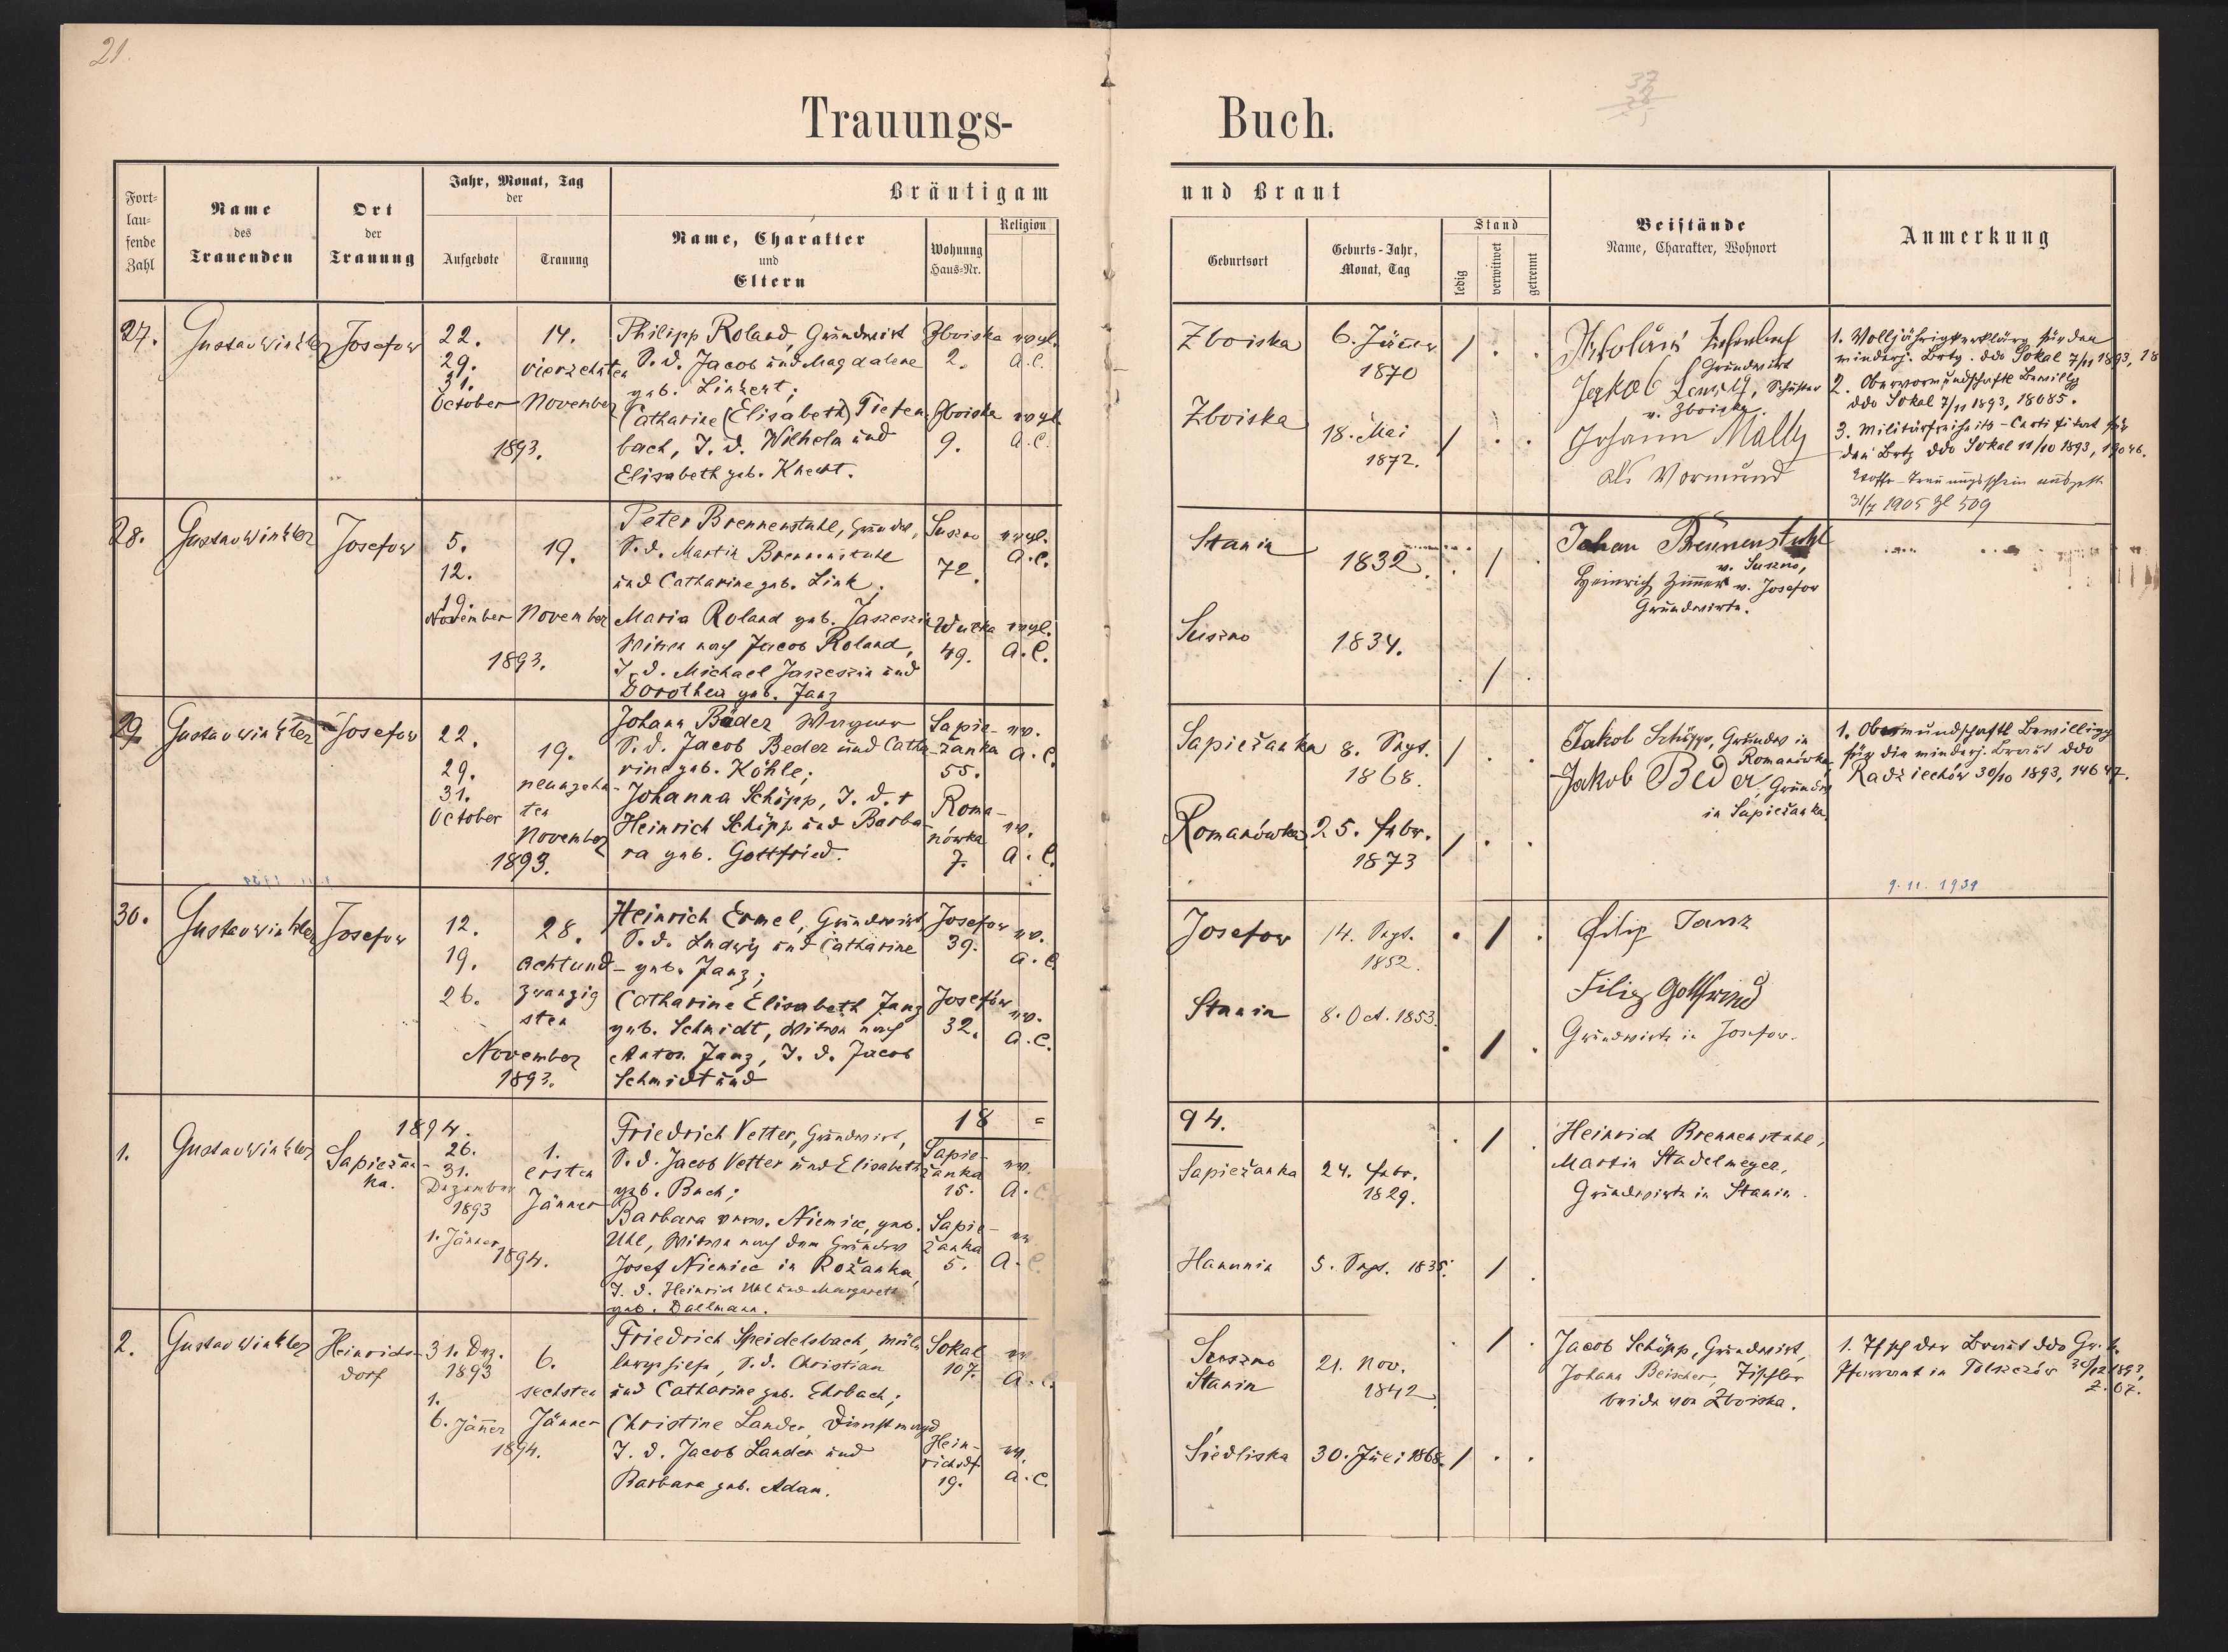 21.
37
Trauungs-
Buch.
Fort-
lau-
fende
Zahl
Name
des
Trauenden
Ort
der
Trauung
Jahr, Monat, Tag
der
Aufgebote
Trauung
Bräutigam
Name, Charakter
und
Eltern
Wohnung
Haus-Nr.
Religion
und Braut
Geburtsort
Geburts-Jahr,
Monat, Tag
Stand
ledig
verwitwet
getrennt
Beistände
Name, Charakter, Wohnort
Anmerkung
27.
Gustav Winkler
Josefow
22.
29.
31.
October
14.
vierzehnten
November
1893.
Philipp Roland, Grundwirt
S. d. Jacob und Magdalene
geb. Linzert;
Catharine (Elisabeth) Tiefen-
bach, T. d. Wilhelm und
Elisabeth geb. Knecht.
Zboiska
2.
evgl.
A. C.
Zboiska
9.
evgl.
A. C.
Zboiska
6. Jäner
1870
Zboiska
18. Mai
1872.
Grundwirt
Jakob
Schuster
v. Zboiska.
Johann Mally
als Vormund
1. Volljährigkerklärg für den
minderj. Brtg. ddo Sokal 7/11 1893, 18
2. Obervormundschaftl Bewillgg
ddo Sokal 7/11 1893, 18085.
3. Militärfreiheits-Certifikat für
den Brtg ddo Sokal 11/10 1893, 19046.
31/7 1905 Zl 509
28.
Gustav Winkler
Josefow
5.
12.
19.
November
19.
November
1893.
Peter Brennenstuhl, Grundw,
S. d. Martin Brennenstuhl
und Catharine geb. Link;
Maria Roland geb. Jaszeszin
Witwe nach Jacob Roland,
T. d. Michael Jaszeszin und
Dorothea geb. Janz
Suszno
72.
evgl.
A. C.
49.
evgl.
A. C.
Stanin
1832.
Suszno
1834.
Johan Brennenstuhl
v. Suszno,
Heinrich Zimmer v. Josefow
Grundwirte.
29.
Gustav Winkler
Josefow
22.
29.
31.
October
19.
neunzehn-
ten
November
1893.
Johann Bäder Wagner
S. d. Jacob Beder und Catha-
rine geb. Köhle;
Johanna Schöpp, T. d. +
Heinrich Schöpp und Barba-
ra geb. Gottfried.
Sapie-
žanka
55.
ev.
A. C.
Roma-
nówka
7.
ev.
A. C.
Sapiežanka
8. Sept.
1868.
Romanówka
25. Febr.
1873
Jakob Schöpp, Grundw in
Romanówka,
Jakob Beder, Grundw
in Sapiežanka.
1. Obermundschaftl Bewilligg
für die minderj. Braut ddo
Radziechów 30/10 1893, 14647.
9. 11. 1939
30.
Gustav Winkler
Josefow
12.
19.
26.
28.
achtund-
zwanzig
sten
November
1893.
Heinrich Ermel, Grundwirt,
S. d. Ludwig und Catharine
geb. Janz;
Catharine Elisabeth Janz
geb. Schmidt, Witwe nach
Anton Janz, T. d. Jacob
Schmidt und
Josefow
39.
ev.
A. C.
Josefów
32.
ev.
A. C.
Josefow
14. Sept.
1852.
Stanin
8. Oct. 1853.
Filip Janz
Filip Gottfried
Grundwirte in Josefow.
1894.
18 =
94.
1.
Gustav Winkler
Sapiežan-
ka.
26.
31.
Dezember
1893
1. Jänner
1894.
1.
ersten
Jänner
Friedrich Vetter, Grundwirt,
S. d. Jacob Vetter und Elisabeth
geb. Bach;
Barbara verw. Niemiec, geb.
Uhl, Witwe nach dem Grundw
Josef Niemiec in Rožanka,
T. d. Heinrich Uhl und Margareth
geb. Dallmann.
Sapie-
žanka
15.
ev.
A. C.
Sapie-
žanka
5.
ev.
A. C.
Sapiežanka
24. Febr.
1829.
Hanunin
5. Sept. 1835.
Heinrich Brennenstuhl,
Martin Stadelmeyer,
Grundwirte in Stanin.
2.
Gustav Winkler
Heinrichs-
dorf
31. Dez.
1893
1.
6. Jänner
1894.
6.
sechsten
Jänner
Friedrich Speidelsbach,
S. d. Christian
und Catharine geb. Ehrbach;
Christine Lander, Dienstmagd
T. d. Jacob Lander und
Barbara geb. Adam.
Sokal
107.
ev.
A. C.
Hein-
richsdf
19.
ev.
A. C.
Suszno
Stanin
21. Nov.
1842
Siedliska
30. Juli 1868.
Jacob Schöpp, Grundwirt,
Johann Beischer, Tischler
beide von Zboiska.
1. Tfsch der Braut ddo Gr. k.
Pfarramt in Tolszczów 30/12 1893,
Z. 67.